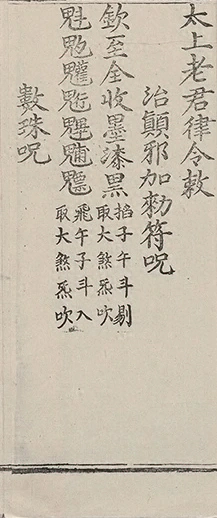 太上老君律令敕
治顛邪加勑符呪
欽至全收墨漆黑
掐子午斗剔
取大煞炁吹
魁𩲃䰱䰢魓𩳐魒
飛午子斗入
取大煞炁吹
數珠呪